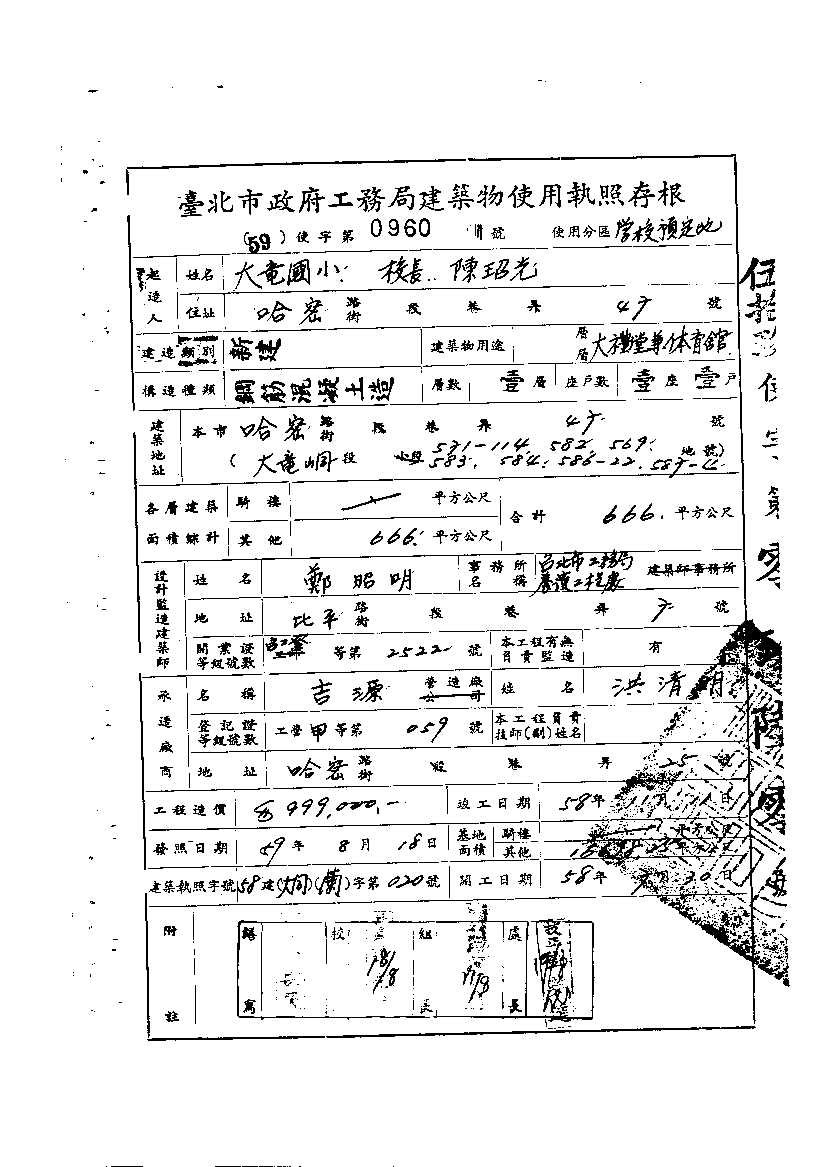 臺北市政府工務局建築物使用執照存根
(59)使字第0960號 使用分區 学校預定地
起造人 姓名 大竜國小 校長 陳昭光
住址 哈密 路街 段 巷 弄 47 號
建造類別 新建 建築物用途 層層 大禮堂兼体育館
構造種類 鋼筋混凝土造 層數 壹層 座戶數 壹座 壹戶
建築地址 本市 哈密 路街 段 巷 弄 47 號
(大竜峒段 小段 571-114. 582. 569. 583. 584. 586-22. 地號)
各層建築面積綜計 騎樓 平方公尺 合計 666. 平方公尺
其他 666. 平方公尺
設計監造建築師 姓名 鄭昭明 事務所名稱 台北市工務局養護工程處 建築師事務所
地址 北平 路街 段 巷 弄 7 號
開業證等級號數 等第 2522 號 本工程有無負責監造 有
承造廠商 名稱 吉源 營造廠公司 姓名 洪清明
登記證等級號數 工營甲等第 059 號 本工程負責技師(副)姓名
地址 哈密 路街 段 巷 弄 25 號
工程造價 999,000,- 竣工日期 58年 11月 11日
發照日期 59年 8月 18日 基地面積 騎樓 平方公尺 其他 平方公尺
建築執照字號 58建(大同)(蘭)字第020號 開工日期 58年 月 30日
附註
繕寫 校 組長 處長
18/8
伍拾 使字第零 陸零 號